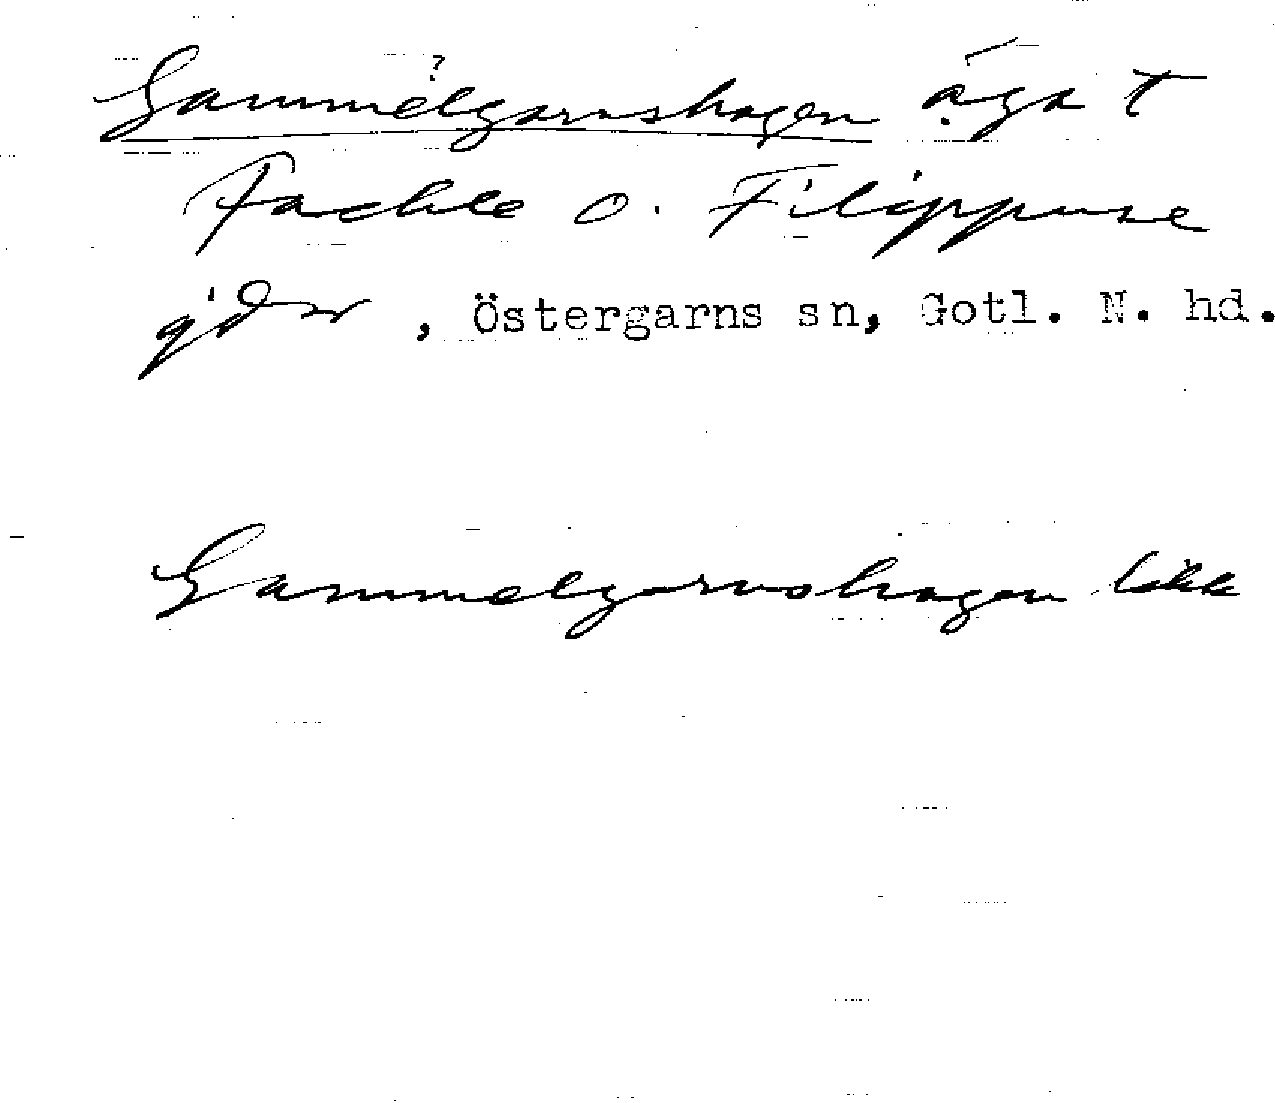 Gammelgarnshagen äga t
Fachle o. Filippuse
gdr, Östergarns sn, Gotl. N. hd.
Gammelgarnshagen